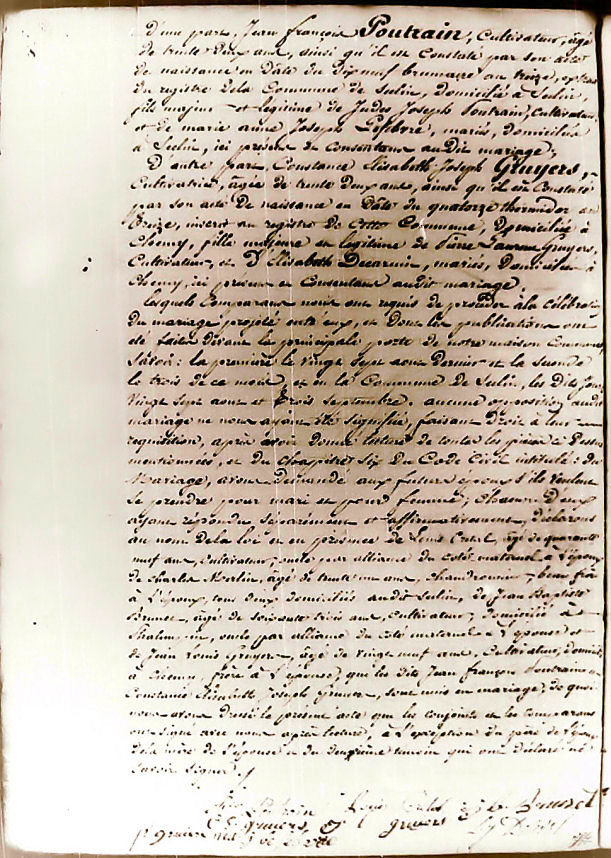 D'une part, Jean françois Poutrain, Cultivateur, âgé
de trente deux ans, ainsi qu'il est Constaté par son acte
de naissance en Date du Dix neuf brumaire an treize, extrait
du registre de la Commune de Salin, domicilié à Salin,
fils majeur et légitime de Judes Joseph Poutrain, Cultivateur
et de marie anne Joseph Lefebvre, mariés, domiciliés
à Salin, ici présens et Consentans au Dit mariage;
D'autre part, Constance Elisabeth Joseph Gruyers,
Cultivatrice, âgée de trente Deux ans, ainsi qu'il est Constaté
par son acte De naissance en Date du quatorze thermidor an
treize, inscrit au registre de Cette Commune, Domiciliée à
fille majeure et légitime de Pierre Laurent Gruyers,
Cultivateur, et D'Elisabeth mariés, Domiciliés à
ici présens et Consentans audit mariage.
Lesquels Comparans nous ont requis de procéder à la célébration
du mariage projeté entr'eux, et Dont les publications ont
été faites Devant la principale porte de notre maison Commune
Savoir: la première le vingt sept aout Dernier et la seconde
le trois de ce mois, et en la Commune de Salin, les Dits jours
vingt sept aout et trois septembre. aucune opposition audit
mariage ne nous ayant été signifiée, faisant Droit à leur
requisition, après avoir donné lecture de toutes les pièces ci Dessus
mentionnées, et du chapitre six du Code Civil intitulé: du
Mariage, avons Demandé aux futurs époux s'ils veulent
se prendre pour mari et pour femme; chacun D'eux
ayant répondu séparément et affirmativement, déclarons
au nom De la loi et en présence de Louis âgé de quarante
neuf ans, Cultivateur, oncle par alliance du coté maternel à l'époux
de charles Merlin, âgé de trente un ans, beau frère
à L'époux, tous deux domiciliés audit Salin, de Jean Baptiste
âgé de soixante trois ans, Cultivateur, domicilié à
oncle par alliance du coté maternel à L'épouse et
de Jean Louis Gruyers, âgé de vingt neuf ans, Cultivateur, domicilié
à frère à L'épouse, que les Dits Jean françois Poutrain et
Constance Elisabeth Joseph Gruyers, sont unis en mariage; de quoi
nous avons Dressé le présent acte que les conjoints et les Comparans
ont signé avec nous après lecture, à L'exception du père de l'époux
de la mère de l'épouse et du deuxième témoin qui ont déclaré ne
savoir signer.
Poutrain Louis
gruyers gruyers